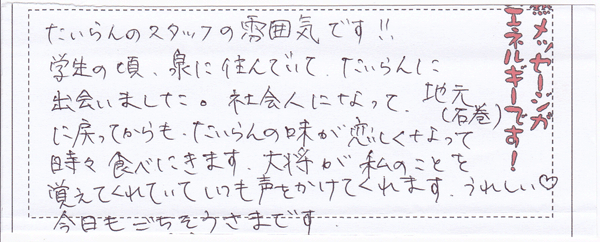 たいらんのスタッフの雰囲気です!!
学生の頃、泉に住んでいて、たいらんに
出会いました。社会人になって、地元(石巻)
に戻ってからも、たいらんの味が恋しくなって
時々食べにきます。大将が私のことを
覚えてくれていていつも声をかけてくれます。うれしい♡
今日もごちそうさまです.
※メッセージが
エネルギーです!